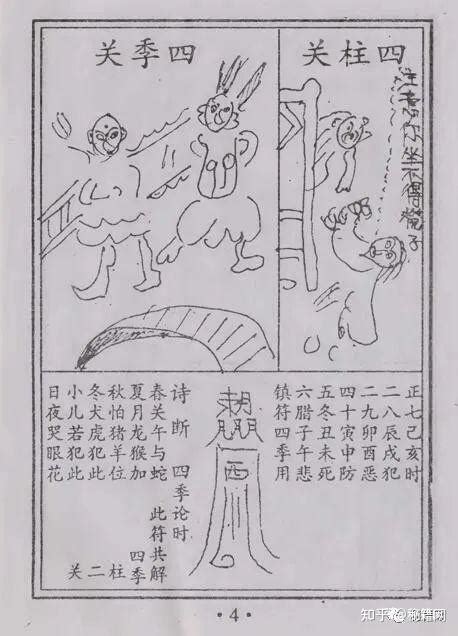 四柱关
注意坐不得子
四季关
正七己亥时
二八辰戌犯
二九卯酉恶
四十寅申防
五冬丑未死
六腊子午悲
镇符四季用
西
诗断 四季论时
春关午与蛇
夏月龙猴加
秋怕猪羊位
冬犬虎犯此
小儿若犯此
日夜哭眼花
此符共解
四季
柱二关
·4·
知乎 @秘籍网